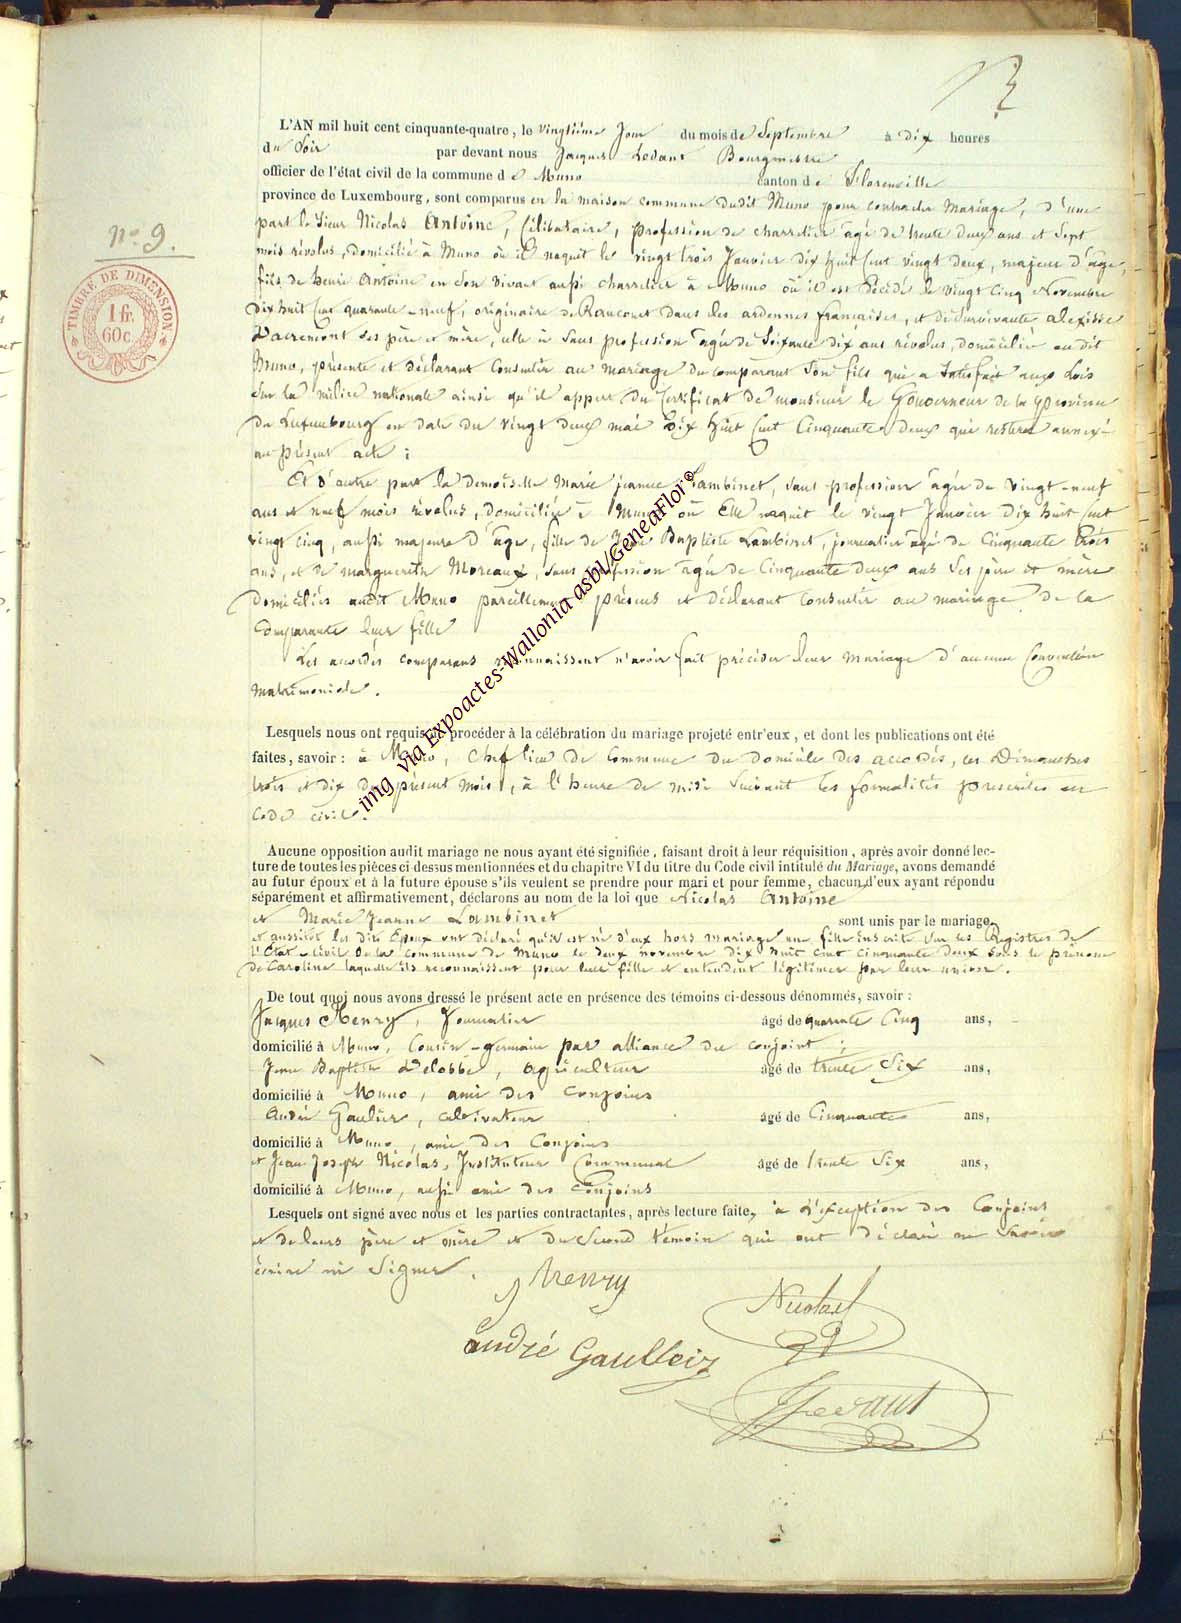 L'AN mil huit cent cinquante-quatre, le vingtième jour du mois de Septembre à dix heures
du Soir par devant nous Jacques Bourgmestre
officier de l'état civil de la commune d e Muno canton d e Florenville
province de Luxembourg, sont comparus en la maison commune dudit Muno pour contracter Mariage, d'une
part le Sieur Nicolas Antoine, Célibataire, profession de charretier âgé de trente deux ans et Sept
mois révolus, domicilié à Muno où il naquit le vingt trois Janvier dix huit Cent vingt deux, majeur d'âge,
fils de henri Antoine en son vivant aussi charretier à Muno où il est décédé le vingt cinq Novembre
dix huit Cent quarante-neuf, originaire de Raucourt dans les ardennes françaises, et de Survivante alexisse
ses père et mère, celle ci Sans profession âgée de Soixante dix ans révolus, domiciliée au dit
Muno, présente et déclarant Consentir au mariage du comparant Son fils qui a Satisfait aux Lois
Sur la milice nationale ainsi qu'il appert du Certificat de monsieur le Gouverneur de la province
de Luxembourg en date du vingt deux mai Dix huit Cent Cinquante deux qui restera annexé
au présent acte ;
Et d'autre part la demoiselle Marie jeanne Lambinet, Sans profession âgée de vingt-neuf
ans et neuf mois révolus, domiciliée à Muno où Elle naquit le vingt Janvier Dix huit Cent
vingt Cinq, aussi majeure d'âge, fille de Jean Baptiste Lambinet, journalier âgé de Cinquante trois
ans, et de marguerite Moreaux, Sans profession âgée de Cinquante deux ans Ses père et mère
domiciliés audit Muno pareillement présens et déclarant Consentir au mariage de la
Comparante leur fille
Les accordés comparans reconnaissent n'avoir fait précéder leur mariage d'aucune Convention
matrimoniale.
Lesquels nous ont requis de procéder à la célébration du mariage projeté entr'eux, et dont les publications ont été
faites, savoir : à Muno, Chef lieu de Commune du domicile des accordés, les Dimanches
trois et dix du présent mois, à l'heure de midi Suivant les formalités prescrites au
Code civil.
Aucune opposition audit mariage ne nous ayant été signifiée, faisant droit à leur réquisition, après avoir donné lec-
ture de toutes les pièces ci-dessus mentionnées et du chapitre VI du titre du Code civil intitulé du Mariage, avons demandé
au futur époux et à la future épouse s'ils veulent se prendre pour mari et pour femme, chacun d'eux ayant répondu
séparément et affirmativement, déclarons au nom de la loi que Nicolas Antoine
et Marie Jeanne Lambinet sont unis par le mariage,
et aussitôt les dits Epoux ont déclaré qu'il est né d'eux hors mariage une fille inscrite Sur les Registres de
l'Etat-civil de la commune de Muno le deux novembre dix huit cent cinquante deux sous le prénom
de Caroline laquelle ils reconnaissent pour leur fille et entendent légitimer par leur union.
De tout quoi nous avons dressé le présent acte en présence des témoins ci-dessous dénommés, savoir :
Jacques Henry, Journalier âgé de quarante Cinq ans,
domicilié à Muno, Cousin-germain par alliance du conjoint ;
Jean Baptiste agriculteur âgé de trente Six ans,
domicilié à Muno, ami des Conjoins
André Gaulier, cultivateur âgé de Cinquante ans,
domicilié à Muno, ami des Conjoins
et Jean Joseph Nicolas, Instituteur Communal âgé de trente Six ans,
domicilié à Muno, aussi ami des Conjoins
Lesquels ont signé avec nous et les parties contractantes, après lecture faite, à l'exception des Conjoins
et de leurs père et mère et du Second témoin qui ont déclaré ne Savoir
écrire ni Signer.
J henry
Nicolas
andré
N.° 9.
TIMBRE DE DIMENSION
1 fr.
60 c.
img via Expoactes-Wallonia asbl/GeneaFlor©